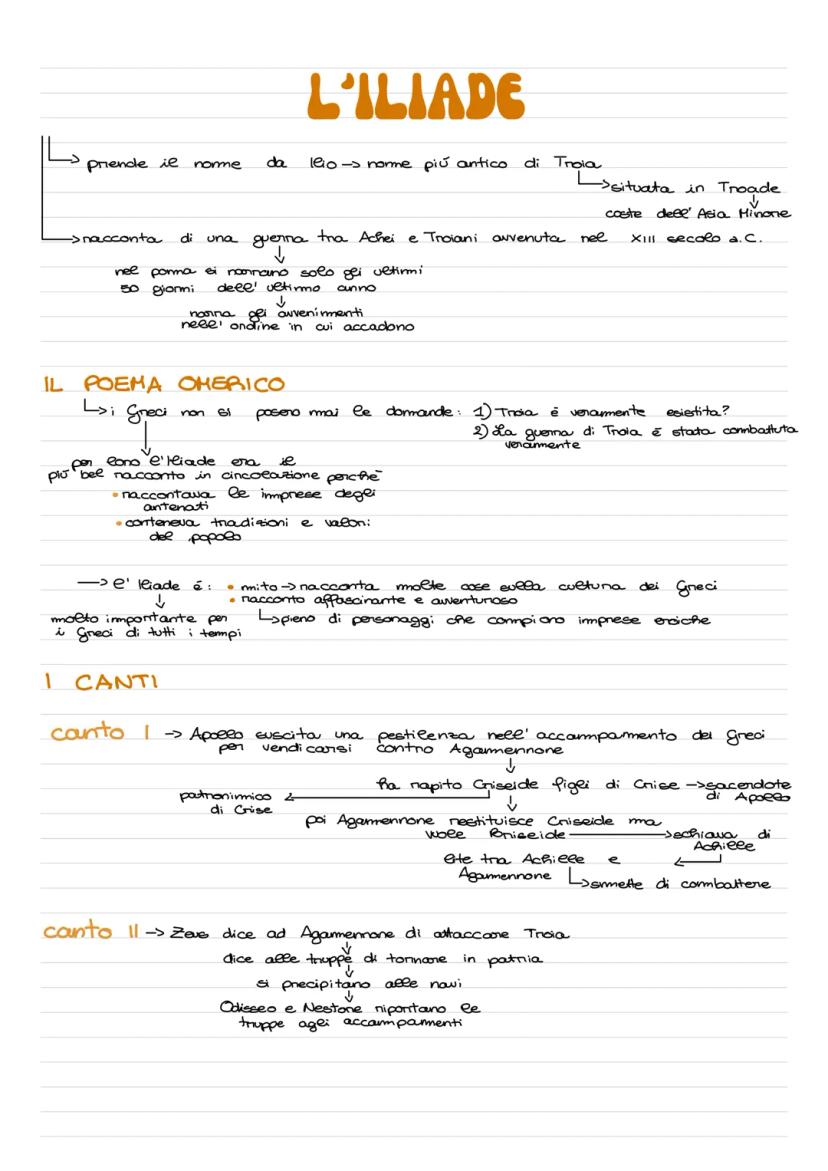 L'ILIADE
prende il nome da Ilio → nome più antico di Troia
situata in Troade
coste dell'Asia Minore
racconta di una guerra tra Achei e Troiani avvenuta nel XIII secolo a.C.
nel poema si narrano solo gli ultimi
50 giorni dell'ultimo anno
narra gli avvenimenti
nell'ordine in cui accadono
IL POEMA OMERICO
i Greci non si posero mai le domande: 1) Troia è veramente esistita?
2) La guerra di Troia è stata combattuta
veramente
per loro l'Iliade era il
più bel racconto in circolazione perché
• raccontava le imprese degli
antenati
• conteneva tradizioni e valori
del popolo
→ l'Iliade é: • mito → racconta molte cose sulla cultura dei Greci
• racconto affascinante e avventuroso
molto importante per
i Greci di tutti i tempi
pieno di personaggi che compiono imprese eroiche
I CANTI
canto I → Apollo suscita una pestilenza nell'accampamento dei Greci
per vendicarsi contro Agamennone
ha rapito Criseide figli di Crise → sacerdote
di Apollo
patronimico
di Crise
poi Agamennone restituisce Criseide ma
vuole Briseide → schiava di
Achille
lite tra Achille e
Agamennone
smette di combattere
canto II → Zeus dice ad Agamennone di attaccare Troia
dice alle truppe di tornare in patria
si precipitano alle navi
Odisseo e Nestore riportano le
truppe agli accampamenti